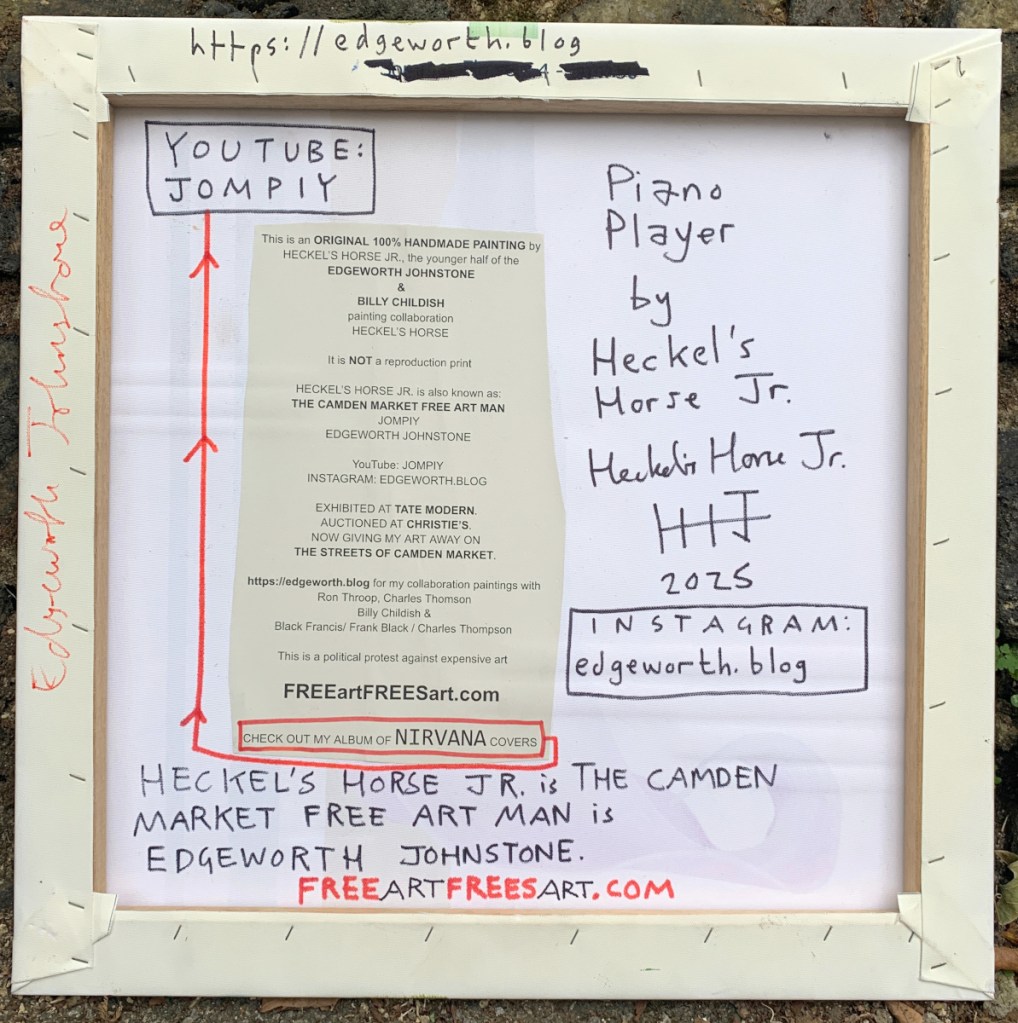 https://edgeworth.blog
YOUTUBE:
JOMPIY
This is an ORIGINAL 100% HANDMADE PAINTING by
HECKEL'S HORSE JR., the younger half of the
EDGEWORTH JOHNSTONE
&
BILLY CHILDISH
painting collaboration
HECKEL'S HORSE
It is NOT a reproduction print
HECKEL'S HORSE JR. is also known as:
THE CAMDEN MARKET FREE ART MAN
JOMPIY
EDGEWORTH JOHNSTONE
YouTube: JOMPIY
INSTAGRAM: EDGEWORTH.BLOG
EXHIBITED AT TATE MODERN.
AUCTIONED AT CHRISTIE'S.
NOW GIVING MY ART AWAY ON
THE STREETS OF CAMDEN MARKET.
https://edgeworth.blog for my collaboration paintings with
Ron Throop, Charles Thomson
Billy Childish &
Black Francis/ Frank Black / Charles Thompson
This is a political protest against expensive art
FREEartFREESart.com
CHECK OUT MY ALBUM OF NIRVANA COVERS
Piano
Player
by
Heckel's
Horse Jr.
Heckel's Horse Jr.
HHJ
2025
INSTAGRAM:
edgeworth.blog
HECKEL'S HORSE JR. is THE CAMDEN
MARKET FREE ART MAN is
EDGEWORTH JOHNSTONE.
FREEARTFREESART.COM
Edgeworth Johnstone